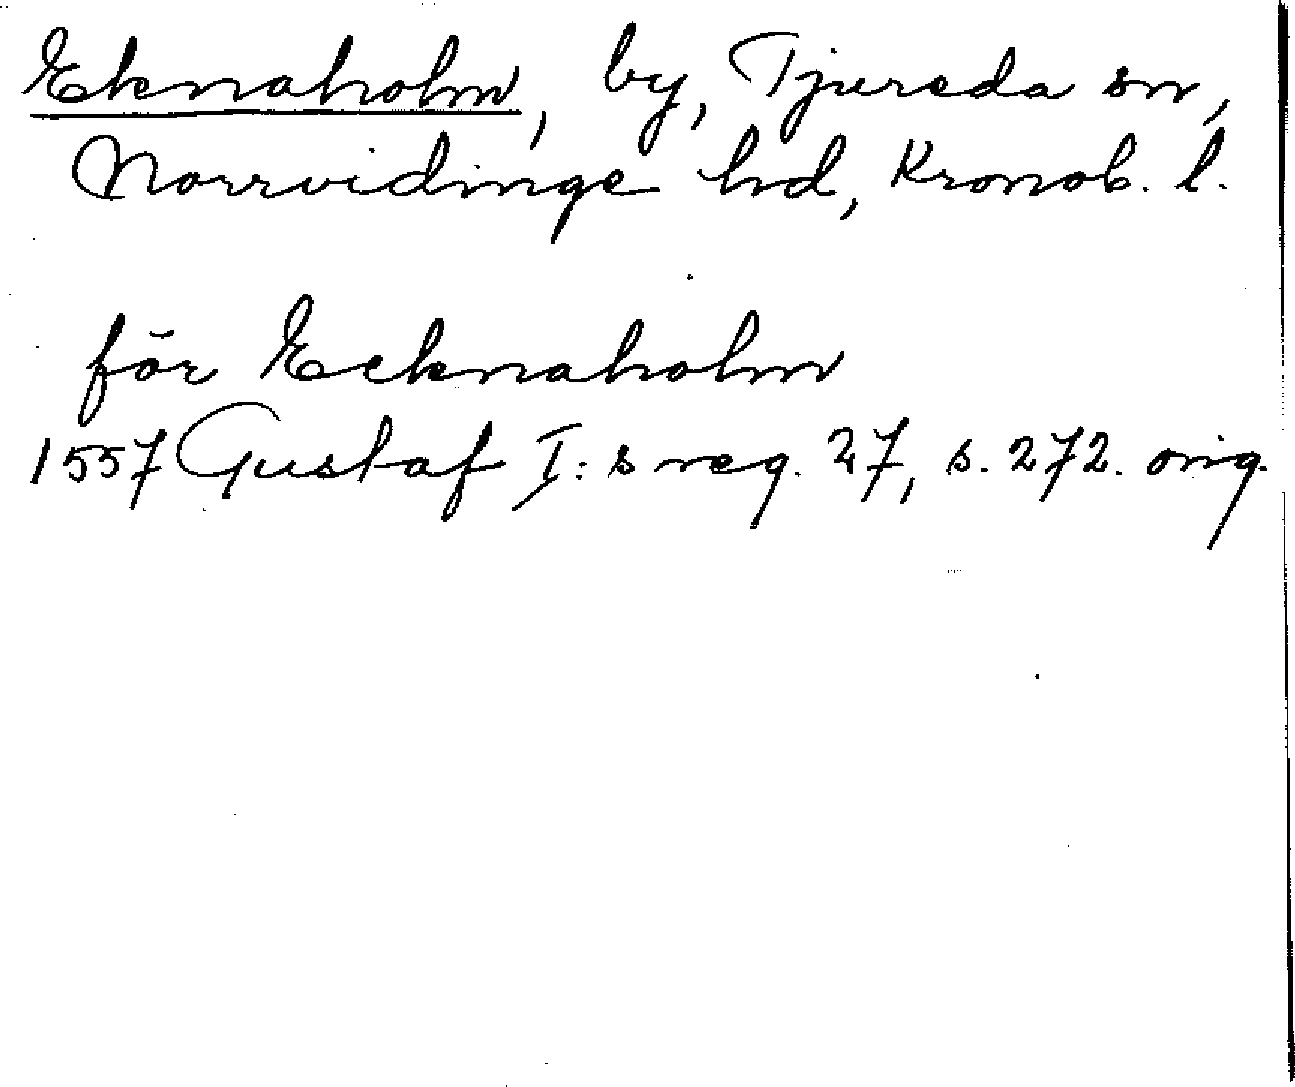 Eknaholm, by, Tjureda sn,
Norrvidinge hd, Kronob. l.
för Ecknaholm
1557 Gustaf I: s reg. 27, s. 272. orig.